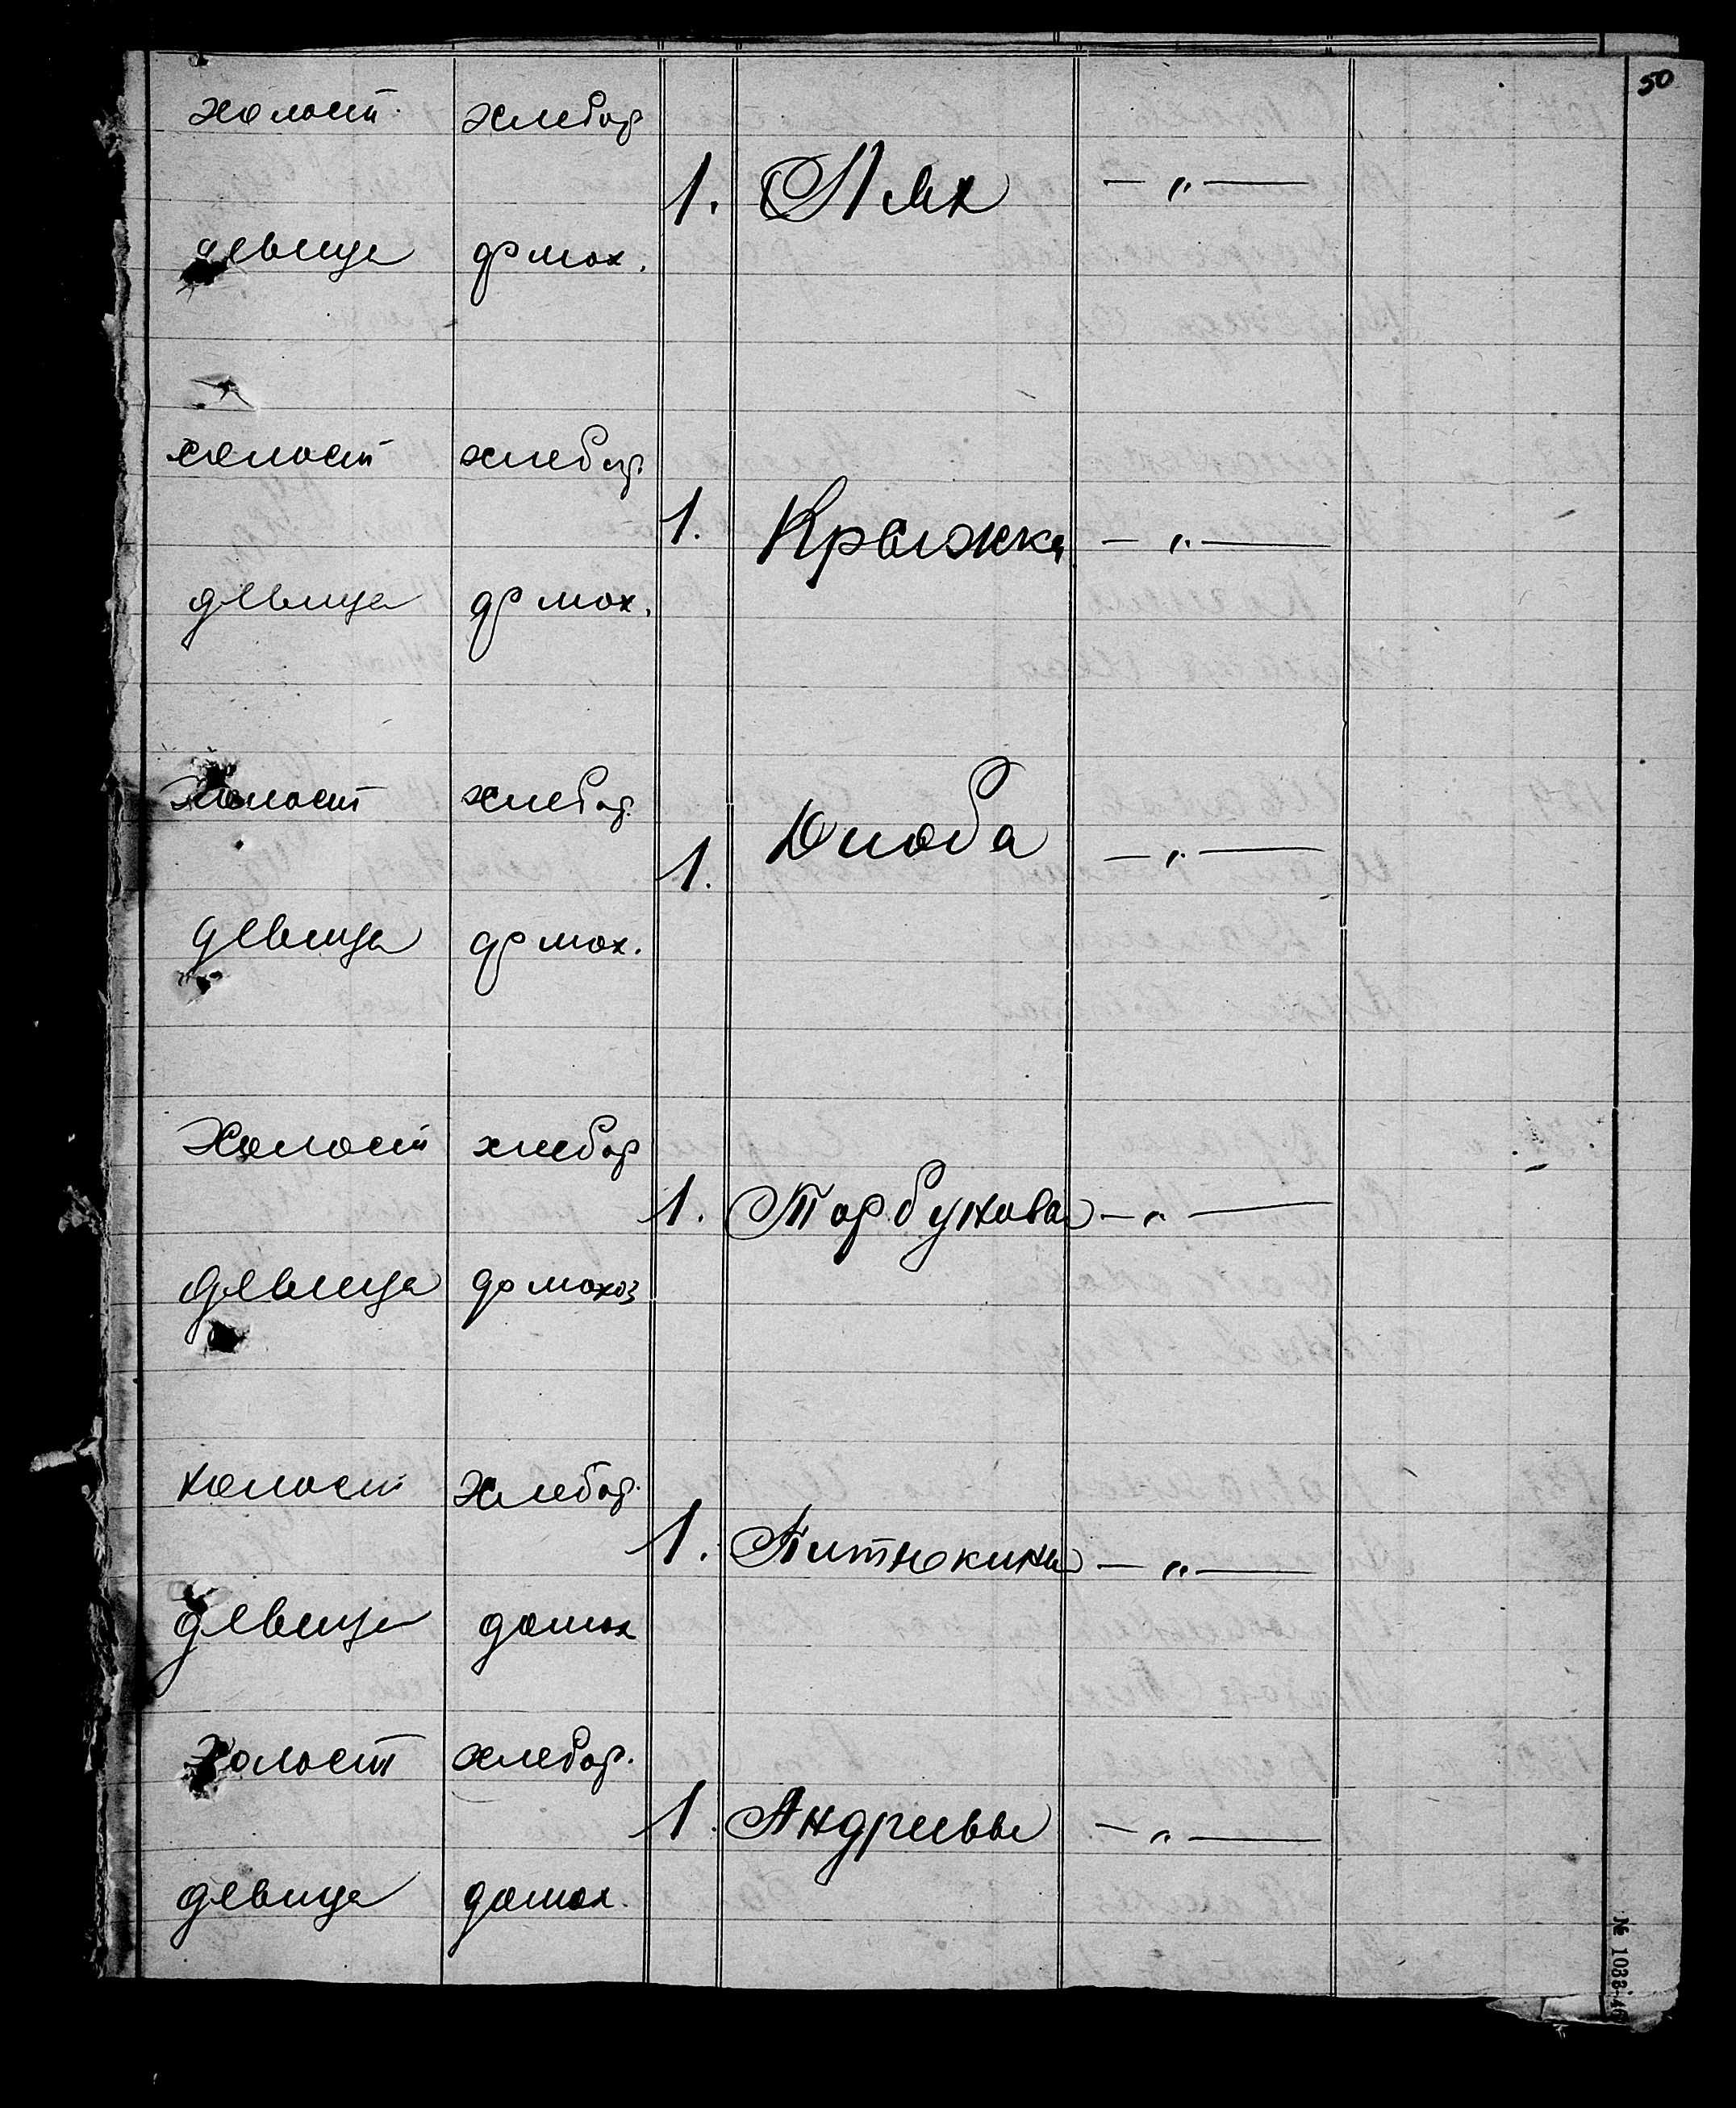 50
холост хлебор
1. Лях — „ —
девица домох.
холост хлебор.
1. Крыжка — „ —
девица домох.
Холост хлебор.
1. Дзюба — „ —
девица домох.
Холост хлебор
1. Торбунова — „ —
Девица домохоз
холост хлебор.
1. Питюкины — „ —
девица домох
Холост хлебор.
1. Андриевы — „ —
девица домох.
№ 1038-46